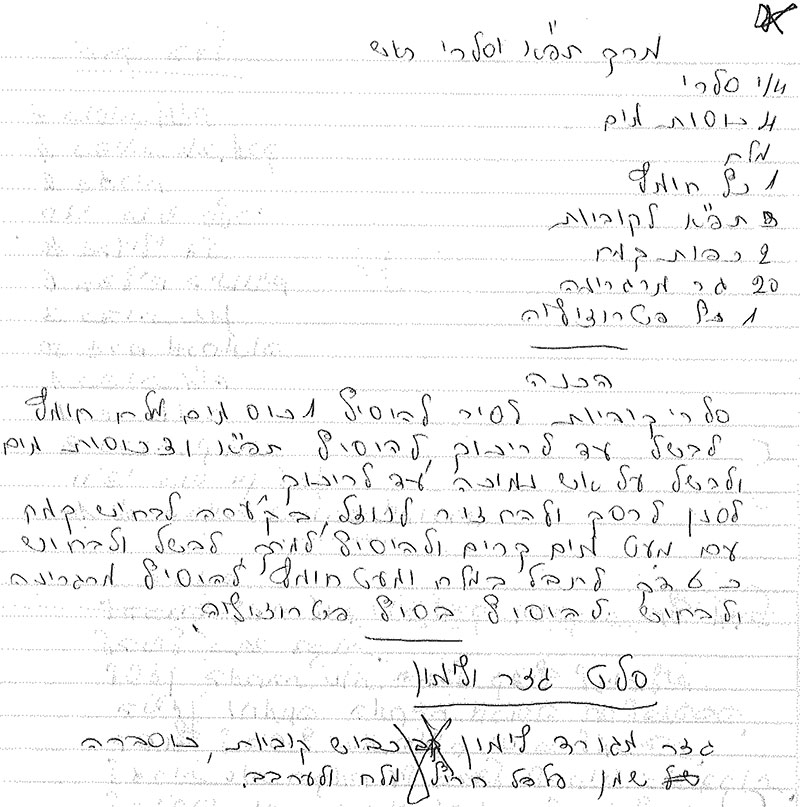 מרק תפ"א וסלרי ראש
1/4 סלרי
4 כוסות מים
מלח
1 כף חומץ
3 תפ"א לקוביות
2 כפות קמח
20 גר מרגרינה
1 כף פטרוזיליה
הכנה
סלרי קוביות לסיר להוסיף 1 כוס מים מלח חומץ
לבשל עד לריכוך, להוסיף תפ"א ו 3 כוסות מים
ולבשל על אש נמוכה עד לריכוך
לסנן לרסק ולהחזיר לנוזל, בקערה לבחוש קמח
עם מעט מים קרים ולהוסיף למרק לבשל ולבחוש
כ 5 דק לתבל במלח ומעט חומץ להוסיף מרגרינה
ולבחוש להוסיף בסוף פטרוזיליה.
סלט גזר ולימון
גזר מגורד לימון כבוש קוביות, כוסברה
שמן פלפל חריף מלח ולערבב.